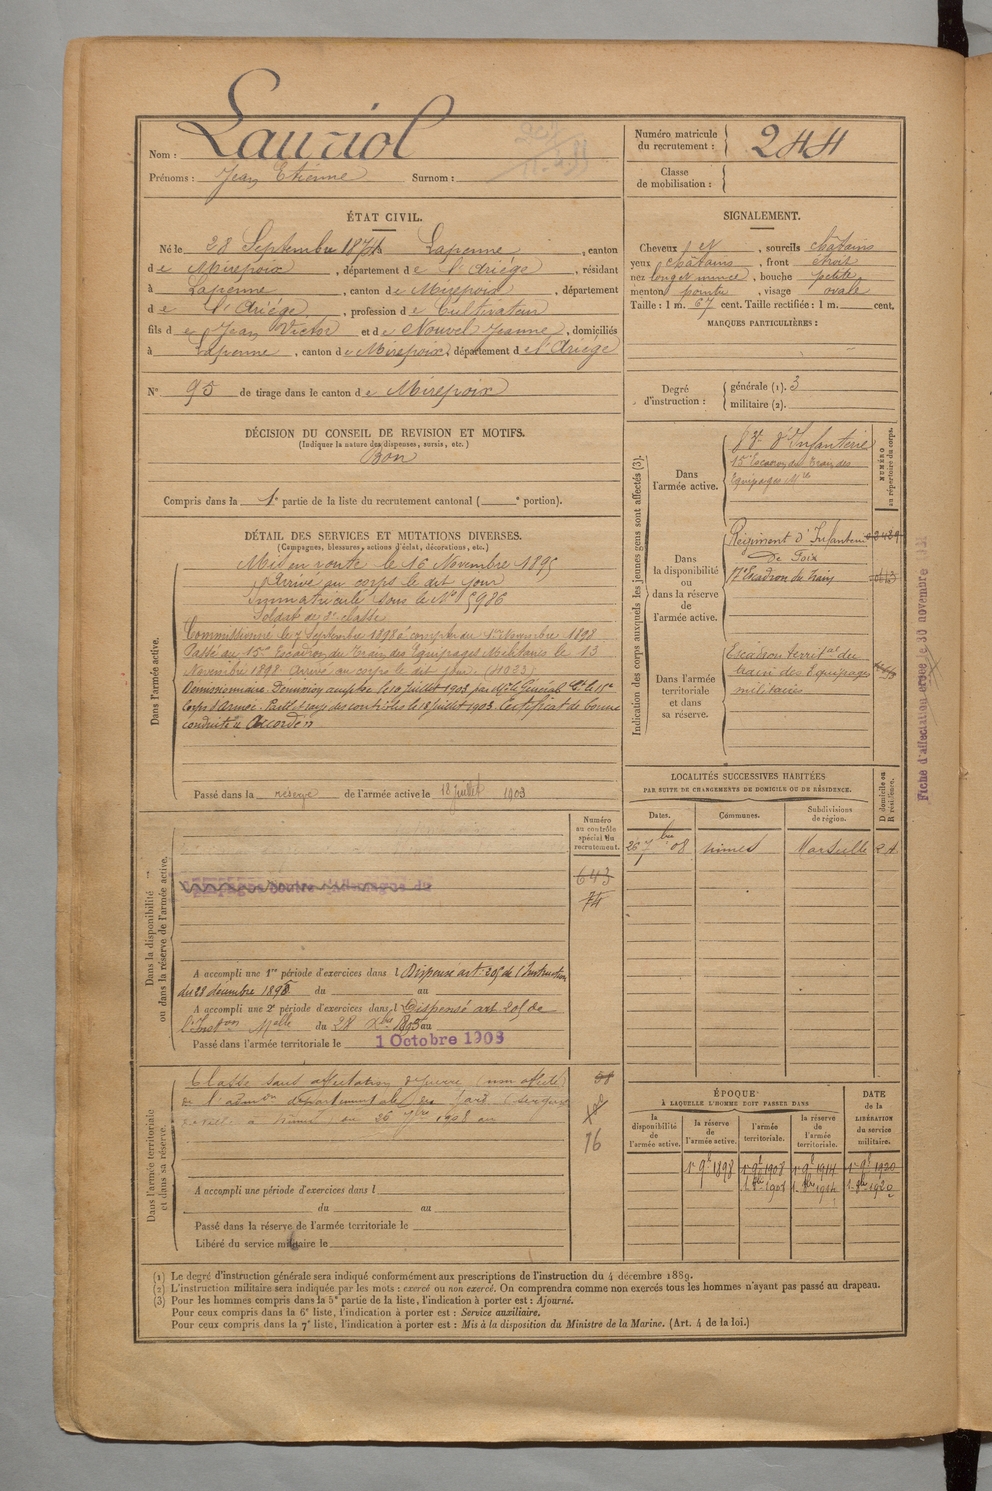 Nom : Lauriol
Prénoms : Jean Etienne Surnom :
Numéro matricule du recrutement : 244
Classe de mobilisation :
ÉTAT CIVIL.
Né le 28 Septembre 1874 à Lapenne, canton
de Mirepoix, département de l'Ariége, résidant
à Lapenne, canton de Mirepoix, département
de l'Ariége, profession de Cultivateur
fils de Jean Victor et de Nouvel Jeanne, domiciliés
à Lapenne, canton de Mirepoix, département de l'Ariége
N° 95 de tirage dans le canton de Mirepoix
SIGNALEMENT.
Cheveux , sourcils châtains
yeux châtains, front étroit
nez long et mince, bouche petite
menton pointu, visage ovale
Taille : 1 m. 67 cent. Taille rectifiée : 1 m. cent.
MARQUES PARTICULIÈRES :
Degré d'instruction : générale (1). 3
militaire (2).
DÉCISION DU CONSEIL DE REVISION ET MOTIFS.
(Indiquer la nature des dispenses, sursis, etc.)
Bon
Compris dans la 1e partie de la liste du recrutement cantonal ( e portion).
DÉTAIL DES SERVICES ET MUTATIONS DIVERSES.
(Campagnes, blessures, actions d'éclat, décorations, etc.)
Dans l'armée active.
Mis en route le 16 Novembre 1895
Arrivé au corps le dit jour
Immatriculé sous le N° 5986
Soldat de 2e classe
Commissionné le 7 Septembre 1898 à compter du 1er Novembre 1898
Passé au 15e Escadron du Train des Equipages Militaires le 13
Novembre 1898 arrivé au corps le dit jour (4023)
Démissionnaire. Démission acceptée le 10 juillet 1903 par Mr le Général Ct le 15e
Corps d'Armée. Rayé des contrôles le 18 juillet 1903. Certificat de bonne
conduite Accordé
Passé dans la réserve de l'armée active le 18 juillet 1903
Indication des corps auxquels les jeunes gens sont affectés (3).
NUMÉRO au répertoire du corps.
Dans l'armée active.
d'Infanterie
15e Escadron du Train des
Equipages Mres
Dans la disponibilité ou dans la réserve de l'armée active.
Régiment d'Infanterie
De Foix
17e Escadron du Train
Dans l'armée territoriale et dans sa réserve.
Escadron territal du
train des Equipages
militaires
Fiche d'affectation créée le 30 novembre
LOCALITÉS SUCCESSIVES HABITÉES
PAR SUITE DE CHANGEMENTS DE DOMICILE OU DE RÉSIDENCE.
Dates. Communes. Subdivisions de région. D domicile ou R résidence.
26 7bre 08 Nimes Marseille
Dans la disponibilité ou dans la réserve de l'armée active.
Numéro au contrôle spécial du recrutement.
643
74
A accompli une 1re période d'exercices dans l Dispensé art. 205 de l'Instruction
du 28 décembre 1895 du au
A accompli une 2e période d'exercices dans l Dispensé art 205 de
l'Inston Melle du 28 Xbre 1895 au
Passé dans l'armée territoriale le 1 Octobre 1908
Dans l'armée territoriale et dans sa réserve.
Classé sans affectation de guerre (non affecté)
Nimes au 26 7bre 1908 au
76
A accompli une période d'exercices dans l
du au
Passé dans la réserve de l'armée territoriale le
Libéré du service militaire le
ÉPOQUE
À LAQUELLE L'HOMME DOIT PASSER DANS
la disponibilité de l'armée active. la réserve de l'armée active. l'armée territoriale. la réserve de l'armée territoriale.
DATE de la LIBÉRATION du service militaire.
1er 9bre 1898 1er 9bre 1908 1er 9bre 1914 1er 9bre 1920
1er 8bre 1908 1er 8bre 1914 1er 8bre 1920
(1) Le degré d'instruction générale sera indiqué conformément aux prescriptions de l'instruction du 4 décembre 1889.
(2) L'instruction militaire sera indiquée par les mots : exercé ou non exercé. On comprendra comme non exercés tous les hommes n'ayant pas passé au drapeau.
(3) Pour les hommes compris dans la 5e partie de la liste, l'indication à porter est : Ajourné.
Pour ceux compris dans la 6e liste, l'indication à porter est : Service auxiliaire.
Pour ceux compris dans la 7e liste, l'indication à porter est : Mis à la disposition du Ministre de la Marine. (Art. 4 de la loi.)